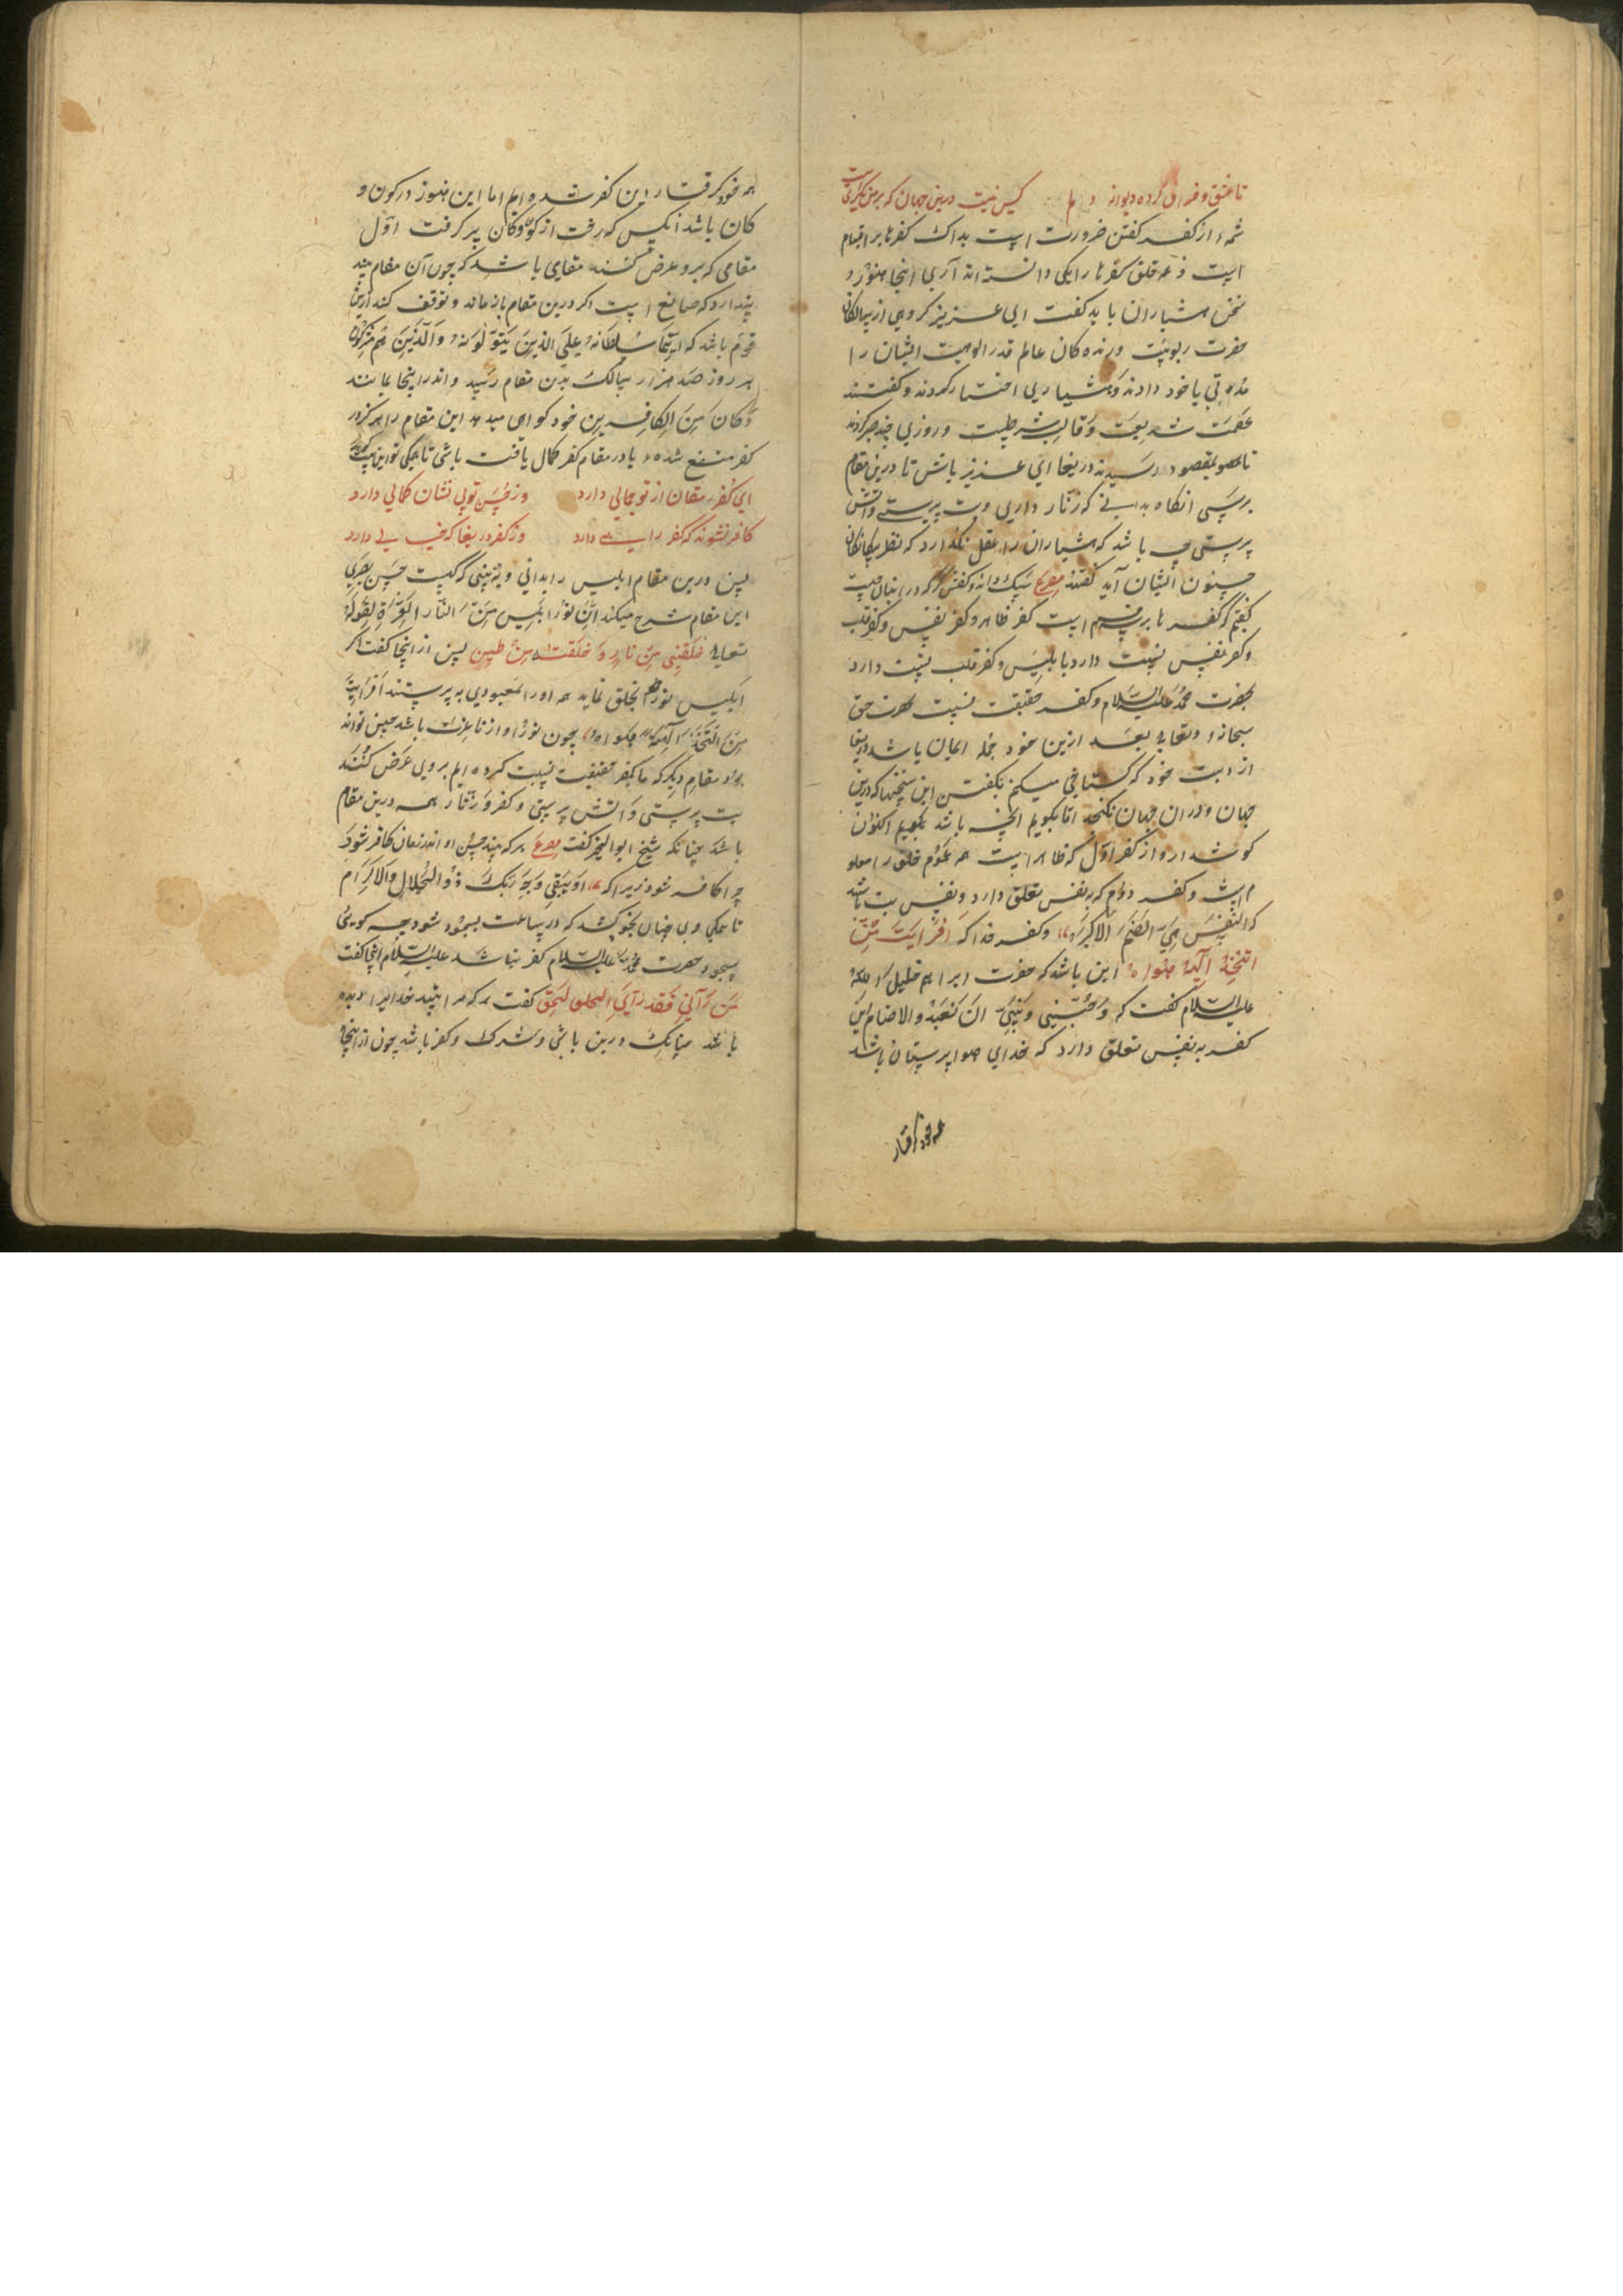 تا عشق و فراق کرده دیوانه دلم کس نیست درین جهان که بر من نگریست
شمهٔ از کفر گفتن ضرورت است بدانک کفرها بر اقسام
است و همه خلق کفرها را یکی دانسته‌اند آری اینجا هنوز و
سخن هشیاران باید گفت ای عزیز گروهی از سالکان
حضرت ربوبیت و رندکان عالم قدر الوهیت ایشان را
مدتی با خود دادند و هشیاری اختیار کردند و گفتند
عصمت شریعت و قالب شرطیست و روزی چند صبر کردند
تا بمقصود رسیدند دریغا ای عزیز باش تا درین مقام
برسی انگاه بدانی که زنار داری و بت پرستی و آتش
پرستی چه باشد که هشیاران را عقل نگذارد که نظر بیگانگان
جنون ایشان آید گفتند مصرع نیک دانند و کفش گر که در انبان چیست
گفتم که کفرها بر چهار قسم است کفر ظاهر و کفر نفس و کفر قلب
و کفر نفس نسبت دارد با ابلیس و کفر قلب نسبت دارد
بحضرت محمد علیه السلام و کفر حقیقت نسبت بحضرت حق
سبحانه و تعالی بعد ازین خود جمله ایمان باشد دریغا
از دست خود که گستاخی میکنم بگفتن این سخنها که درین
جهان و دران جهان نگنجد اما بگویم هرچه باشد بگویم اکنون
گوش دار و از کفر اول که ظاهر است همه عموم خلق را معلو
م است و کفر دوم که بنفس تعلق دارد و نفس بت باشد
که النفس هی الصنم الاکبر و کفر خدا که افرایت من
اتخذ الهه هواه این باشد که حضرت ابراهیم خلیل الله
علیه السلام گفت که وجنبنی وبنی ان نعبد الاصنام این
کفر به نفس تعلق دارد که خدای هوا پرستان باشد
همه خود گرفتار
همه خود گرفتار این کفر شده ایم اما این هنوز در کون و
کان باشد انکس که رفت از کون و کان پر گرفت اول
مقامی که برو عرض کنند مقامی باشد که چون آن مقام بیند
پندارد که صانع است اگر درین مقام باز ماند و توقف کند ازین
قوم باشد که انما سلطانه علی الذین یتولونه والذین هم مشرکون
هر روز صد هزار سالک بدین مقام رسید و اندر اینجا بمانند
وکان من الکافرین خود گواهی میدهد این مقام را هر که در
کفر منتفع شده یا در مقام کفر کمال یافت باشی تا یکی تو این بیت گوئی
ای کفر مغان از تو جمالی دارد وز حسن تو بی نشان کمالی دارد
کافر نشوند که کفر راهی دارد وز کفر دریغا که خیالی دارد
پس درین مقام ابلیس را بدانی و به بینی که کیست حسن بصری
این مقام شرح میکند ان نور ابلیس من النار العزة لقوله
تعالی خلقتنی من نار و خلقته من طین پس از اینجا گفت اگر
ابلیس نور خود بخلق نماید همه او را بمعبودی به پرستند افرایت
من اتخذ الهه هواه چون نور او از نار عزت باشد چنین تواند
بود مقام دیگر که ما بکفر حقیقت نسبت کرده ایم بر وی عرض کنند
بت پرستی و آتش پرستی و کفر و زنار همه درین مقام
باشد چنانکه شیخ ابوالخیر گفت مصرع هر که بیند حسن او اندر زمان کافر شود
چرا کافر شود زیرا که او یبقی وجه ربک ذو الجلال والاکرام
تا یکی وی چنان بخود کشد که در ساعت بسجود شود چه گوئی
سجود حضرت محمد علیه السلام کفر نباشد علیه السلام اینجا گفت
من رانی فقد رای الحق گفت هر که مرا بیند خدایرا دیده
باشد چنانک درین باشی و شرک و کفر باشد چون از اینجا